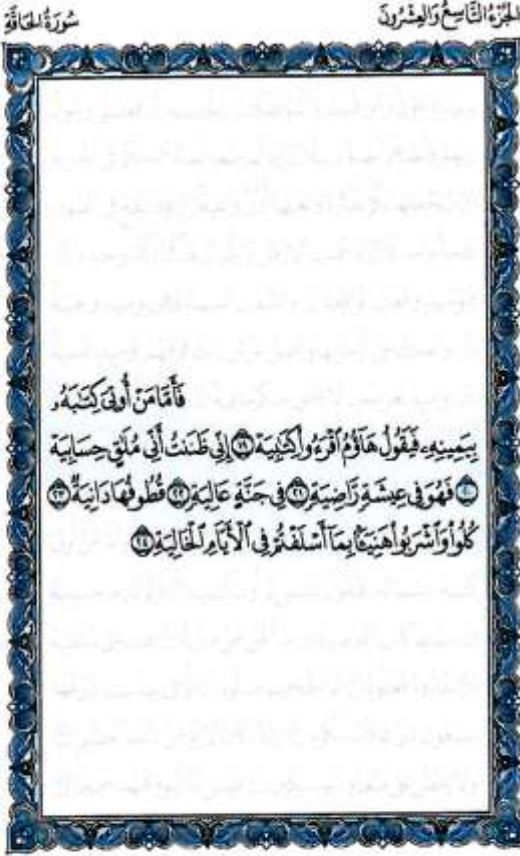 الجُزْءُ التَّاسِعُ وَالعِشْرُونَ
سُورَةُ الحَاقَّةِ
فَأَمَّا مَنْ أُوتِيَ كِتَٰبَهُۥ
بِيَمِينِهِۦ فَيَقُولُ هَآؤُمُ ٱقْرَءُوا۟ كِتَٰبِيَهْ ١٩ إِنِّى ظَنَنتُ أَنِّى مُلَٰقٍ حِسَابِيَهْ
٢٠ فَهُوَ فِى عِيشَةٍ رَّاضِيَةٍ ٢١ فِى جَنَّةٍ عَالِيَةٍ ٢٢ قُطُوفُهَا دَانِيَةٌ ٢٣
كُلُوا۟ وَٱشْرَبُوا۟ هَنِيٓـًٔۢا بِمَآ أَسْلَفْتُمْ فِى ٱلْأَيَّامِ ٱلْخَالِيَةِ ٢٤